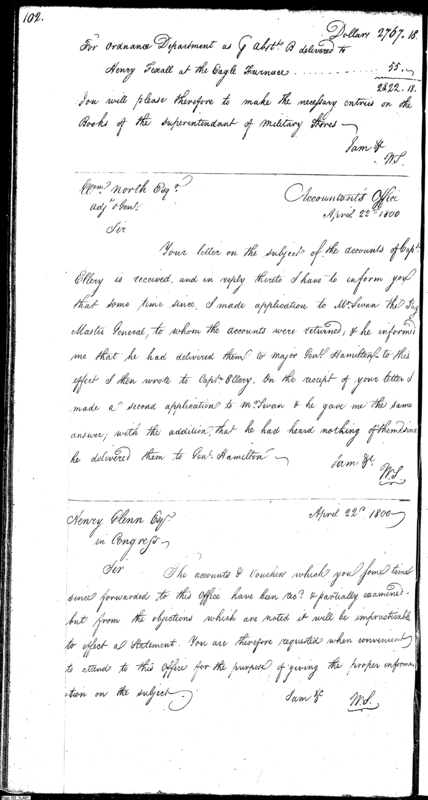 102.
Dollars 2767.18.
For Ordnance Department as
Abstts B delivered to
Henry Foxall at the Eagle Furnace .......... 55.
2822.18.
You will please therefore to make the necessary entries on the
Books of the Superintendant of Military Stores
I am &c
W.S.
Wm. North Esqr.
Adjt. Genl.
Accountant's Office
April 22d 1800
Sir
Your letter on the subject of the accounts of Capt.
Ellery is received, and in reply thereto I have to inform you
that some time since, I made application to Mr. Swan the Pay
Master General, to whom the accounts were returned, & he informed
me that he had delivered them to major Genl. Hamilton to this
effect I then wrote to Captn. Ellery. On the receipt of your letter I
made a second application to Mr. Swan & he gave me the same
answer; with the addition, that he had heard nothing of them since
he delivered them to Genl. Hamilton
I am &c.
W.S.
Henry Glenn Esqr.
in Congress
April 22d 1800
Sir
The accounts & Vouchers which you some time
since forwarded to this Office have been recd. & partially examined
but from the objections which are noted it will be impracticable
to effect a Statement. You are therefore requested when convenient
to attend to this Office for the purpose of giving the proper informa
tion on the subject
I am &c
W.S.